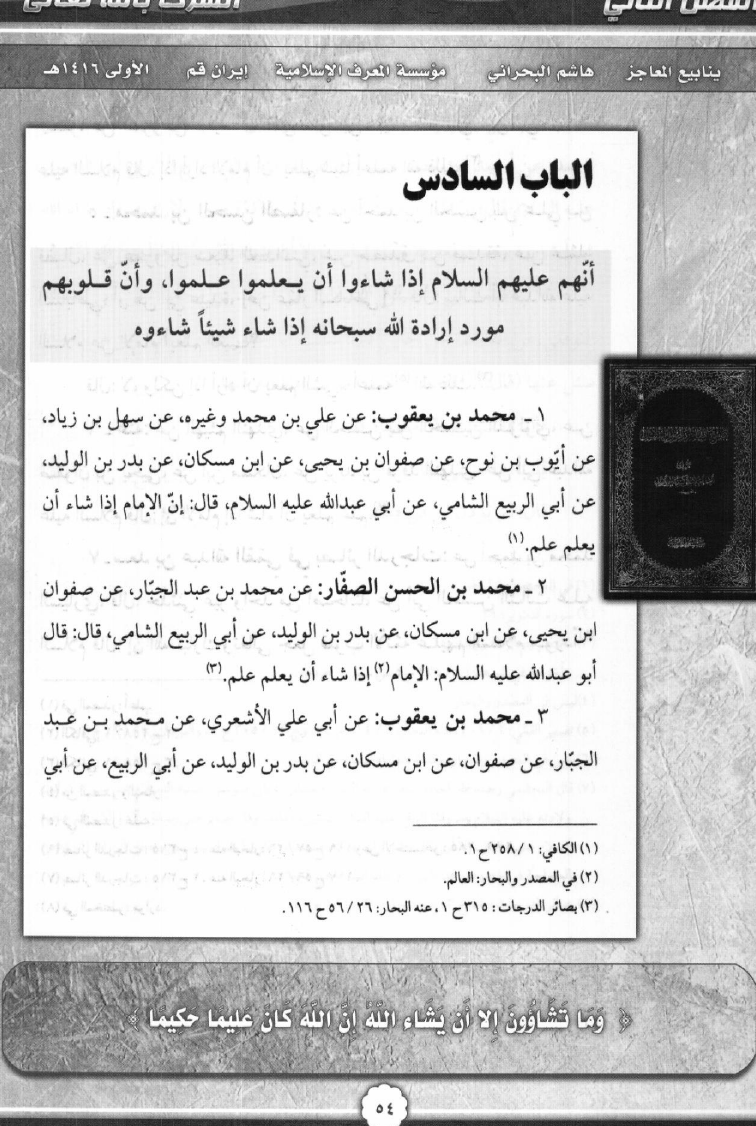 الفصل الثاني الشرك بالله تعالى
ينابيع المعاجز هاشم البحراني مؤسسة المعرف الإسلامية إيران قم الأولى ١٤١٦هـ
الباب السادس
أنّهم عليهم السلام إذا شاءوا أن يـعلموا عـلموا، وأنّ قـلوبهم
مورد إرادة الله سبحانه إذا شاء شيئاً شاءوه
١ ـ محمد بن يعقوب: عن علي بن محمد وغيره، عن سهل بن زياد،
عن أيّوب بن نوح، عن صفوان بن يحيى، عن ابن مسكان، عن بدر بن الوليد،
عن أبي الربيع الشامي، عن أبي عبدالله عليه السلام، قال: إنّ الإمام إذا شاء أن
يعلم علم.(١)
٢ ـ محمد بن الحسن الصفّار: عن محمد بن عبد الجبّار، عن صفوان
ابن يحيى، عن ابن مسكان، عن بدر بن الوليد، عن أبي الربيع الشامي، قال: قال
أبو عبدالله عليه السلام: الإمام(٢) إذا شاء أن يعلم علم.(٣)
٣ ـ محمد بن يعقوب: عن أبي علي الأشعري، عن محمد بن عبد
الجبّار، عن صفوان، عن ابن مسكان، عن بدر بن الوليد، عن أبي الربيع، عن أبي
(١) الكافي: ١ / ٢٥٨ ح ١.
(٢) في المصدر والبحار: العالم.
(٣) بصائر الدرجات: ٣١٥ ح ١، عنه البحار: ٢٦ / ٥٦ ح ١١٦.
﴿ وَمَا تَشَاؤُونَ إِلا أَن يَشَاء اللَّهُ إِنَّ اللَّهَ كَانَ عَلِيمًا حَكِيمًا ﴾
٥٤